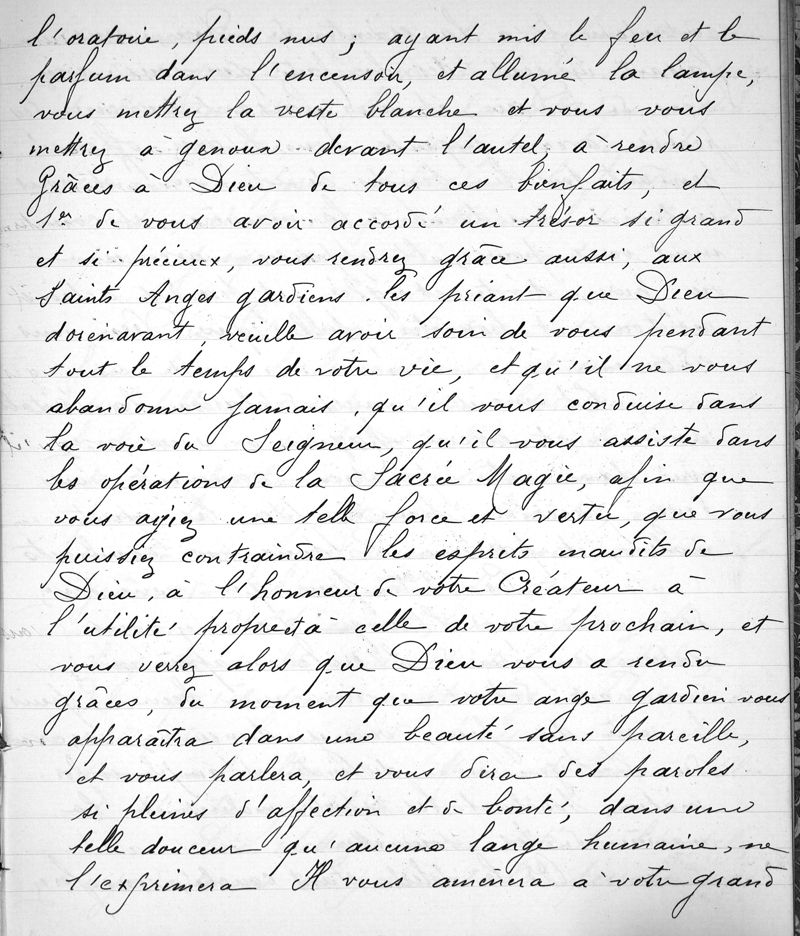 l'oratoire, pieds nus ; ayant mis le feu et le
parfum dans l'encensoir, et allumé la lampe,
vous mettrez la veste blanche et vous vous
mettrez à genoux devant l'autel, à rendre
Grâces à Dieu de tous ces bienfaits, et
1er de vous avoir accordé un trésor si grand
et si précieux, vous rendrez grâce aussi, aux
Saints Anges gardiens. les priant que Dieu
dorénavant, veuille avoir soin de vous pendant
tout le temps de votre vie, et qu'il ne vous
abandonne jamais, qu'il vous conduise dans
la voie du Seigneur, qu'il vous assiste dans
les opérations de la Sacrée Magie, afin que
vous ayiez une telle force et vertu, que vous
puissiez contraindre les esprits maudits de
Dieu, à l'honneur de votre Créateur à
l'utilité propre et à celle de votre prochain, et
vous verrez alors que Dieu vous a rendu
grâces, du moment que votre ange gardien vous
apparaîtra dans une beauté sans pareille,
et vous parlera, et vous dira des paroles
si pleines d'affection et de bonté, dans une
telle douceur qu'aucune lange humaine, ne
l'exprimera Il vous amènera à votre grand